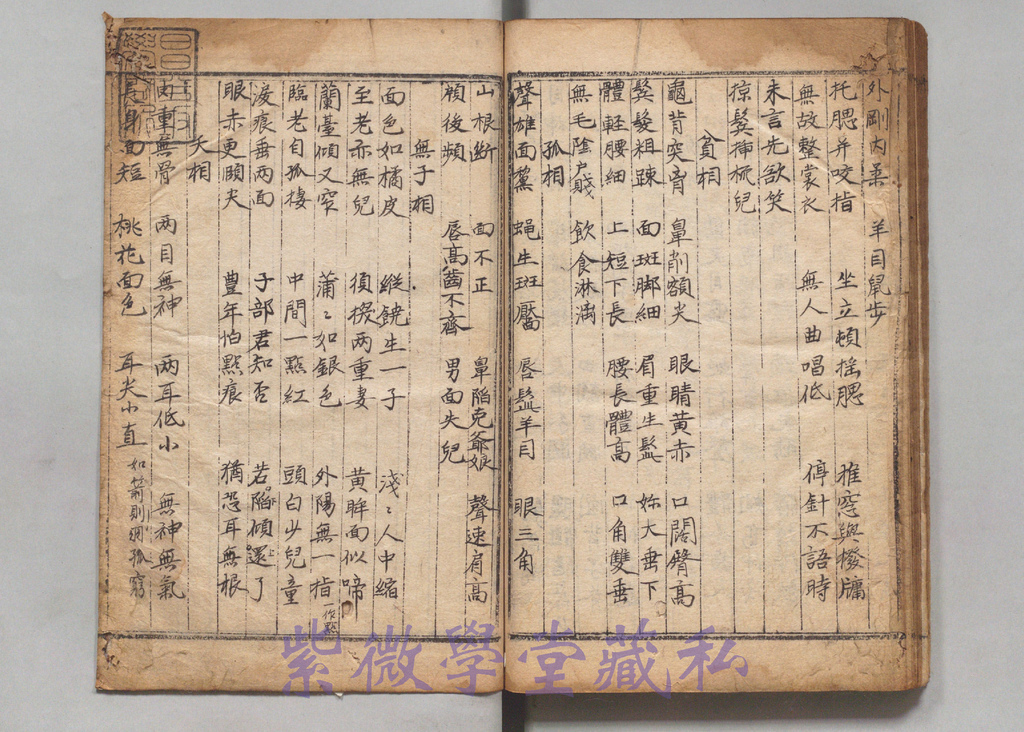 外剛內柔 羊目鼠步
托腮并咬指 坐立頻搖腮 推窓與撥牖
無故整裳衣 無人曲唱低 停針不語時
未言先欲笑
掠鬂揷梳兒
貧相
龜背突胷 鼻削額尖 眼睛黄赤 口闊臀高
鬂髮粗踈 面斑脚細 眉重生髭 妳大垂下
體輕腰細 上短下長 腰長體高 口角雙垂
無毛陰户賤 飲食淋漓
孤相
聲雄面黨 蝇生斑靨 唇髭羊目 眼三角
山根斷 面不正 鼻陷克爺娘 聲速肩高
頬後頻 唇高齒不齊 男面失兒
無子相
面色如橘皮 縱饒生一子 淺〻人中縮
至老亦無兒 須換兩重妻 黄眸面似啼
蘭臺傾又窄 蒲〻如銀色 外陽無一指 一作點
臨老自孤棲 中間一點紅 頭白少兒童
淚痕垂两面 子部君知否 若陷傾還了
眼赤更頤尖 豊年怕點痕 猶恐耳無根
夭相
肉重無骨 两目無神 两耳低小 無神無氣
長身面短 桃花面色 耳尖小直 如箭則
孤窮
紫微學堂藏私